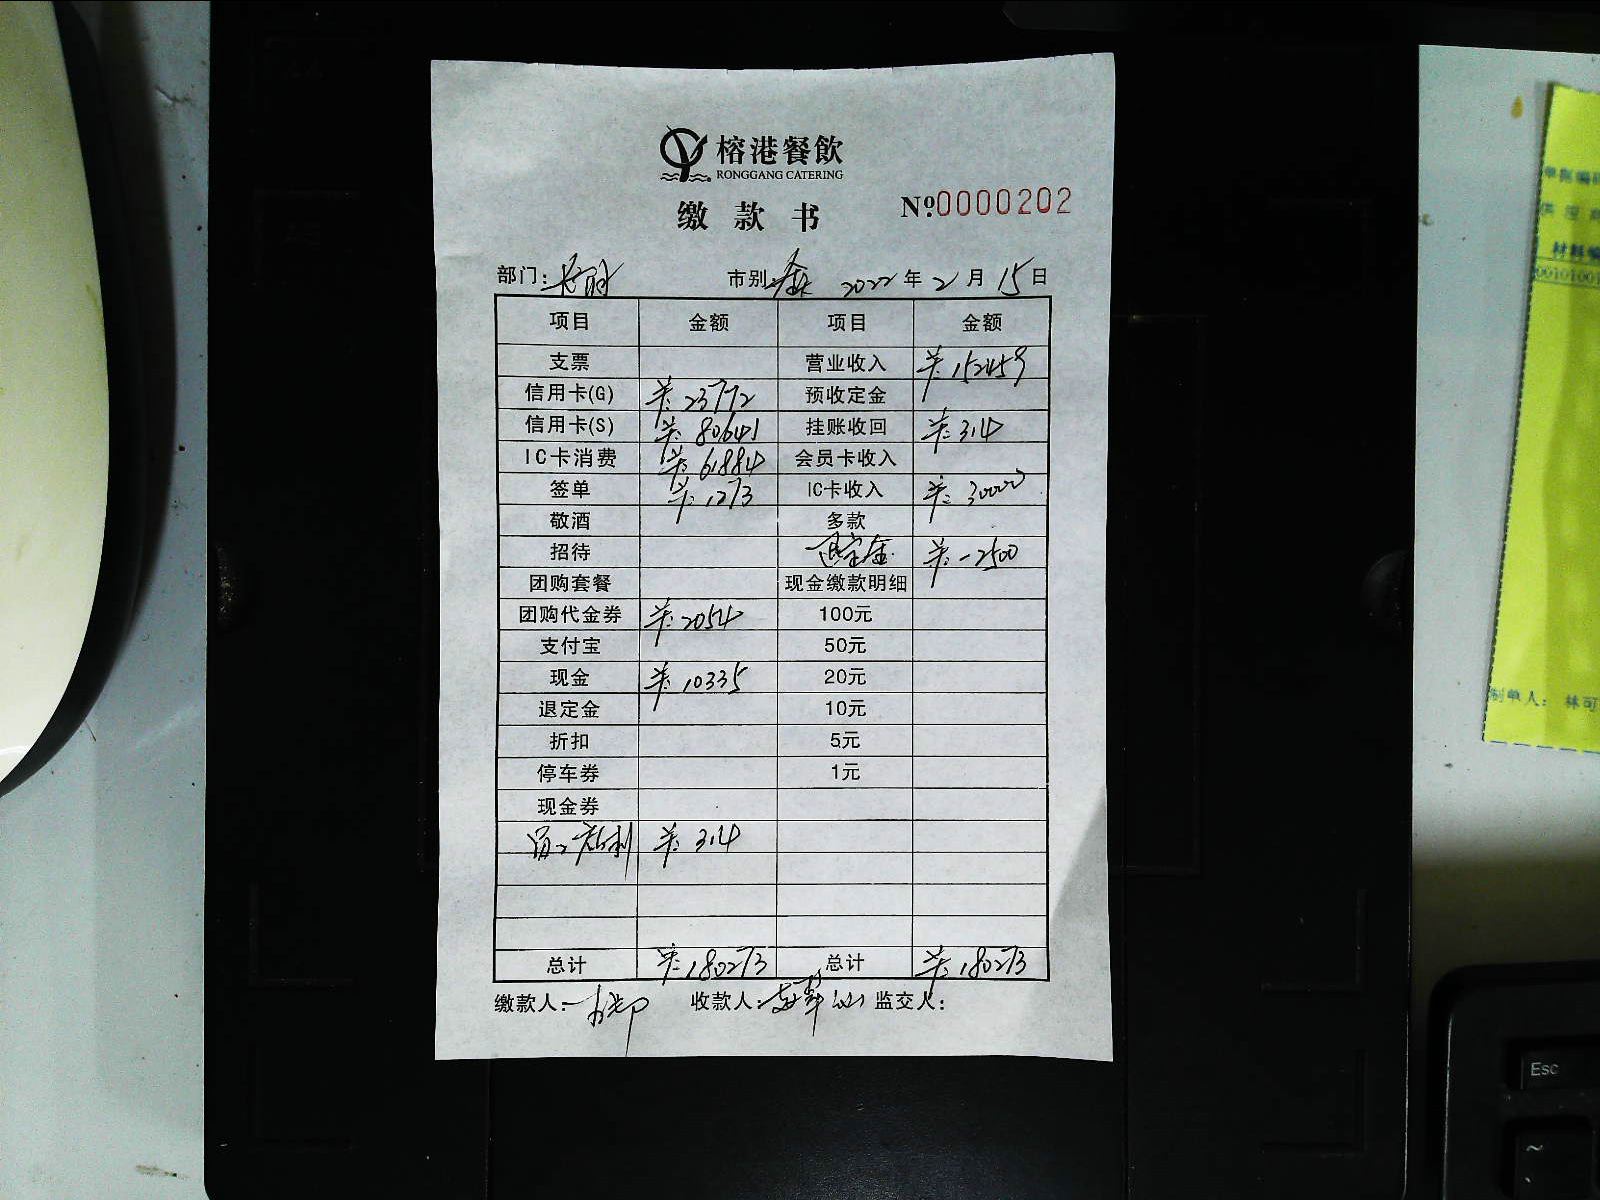 榕港餐飲
RONGGANG CATERING
缴款书 №0000202
部门: 市别: 2022年2月15日
项目 金额 项目 金额
支票 营业收入 ¥:152459
信用卡(G) ¥:23772 预收定金
信用卡(S) ¥:80641 挂账收回 ¥:314
IC卡消费 ¥:61884 会员卡收入
签单 ¥:1273 IC卡收入 ¥:30000
敬酒 多款
招待 退定金 ¥:-2500
团购套餐 现金缴款明细
团购代金券 ¥:2054 100元
支付宝 50元
现金 ¥:10335 20元
退定金 10元
折扣 5元
停车券 1元
现金券
¥:314
总计 ¥:180273 总计 ¥:180273
缴款人: 收款人: 监交人:
材料编
00101001
制单人: 林可
Esc
~